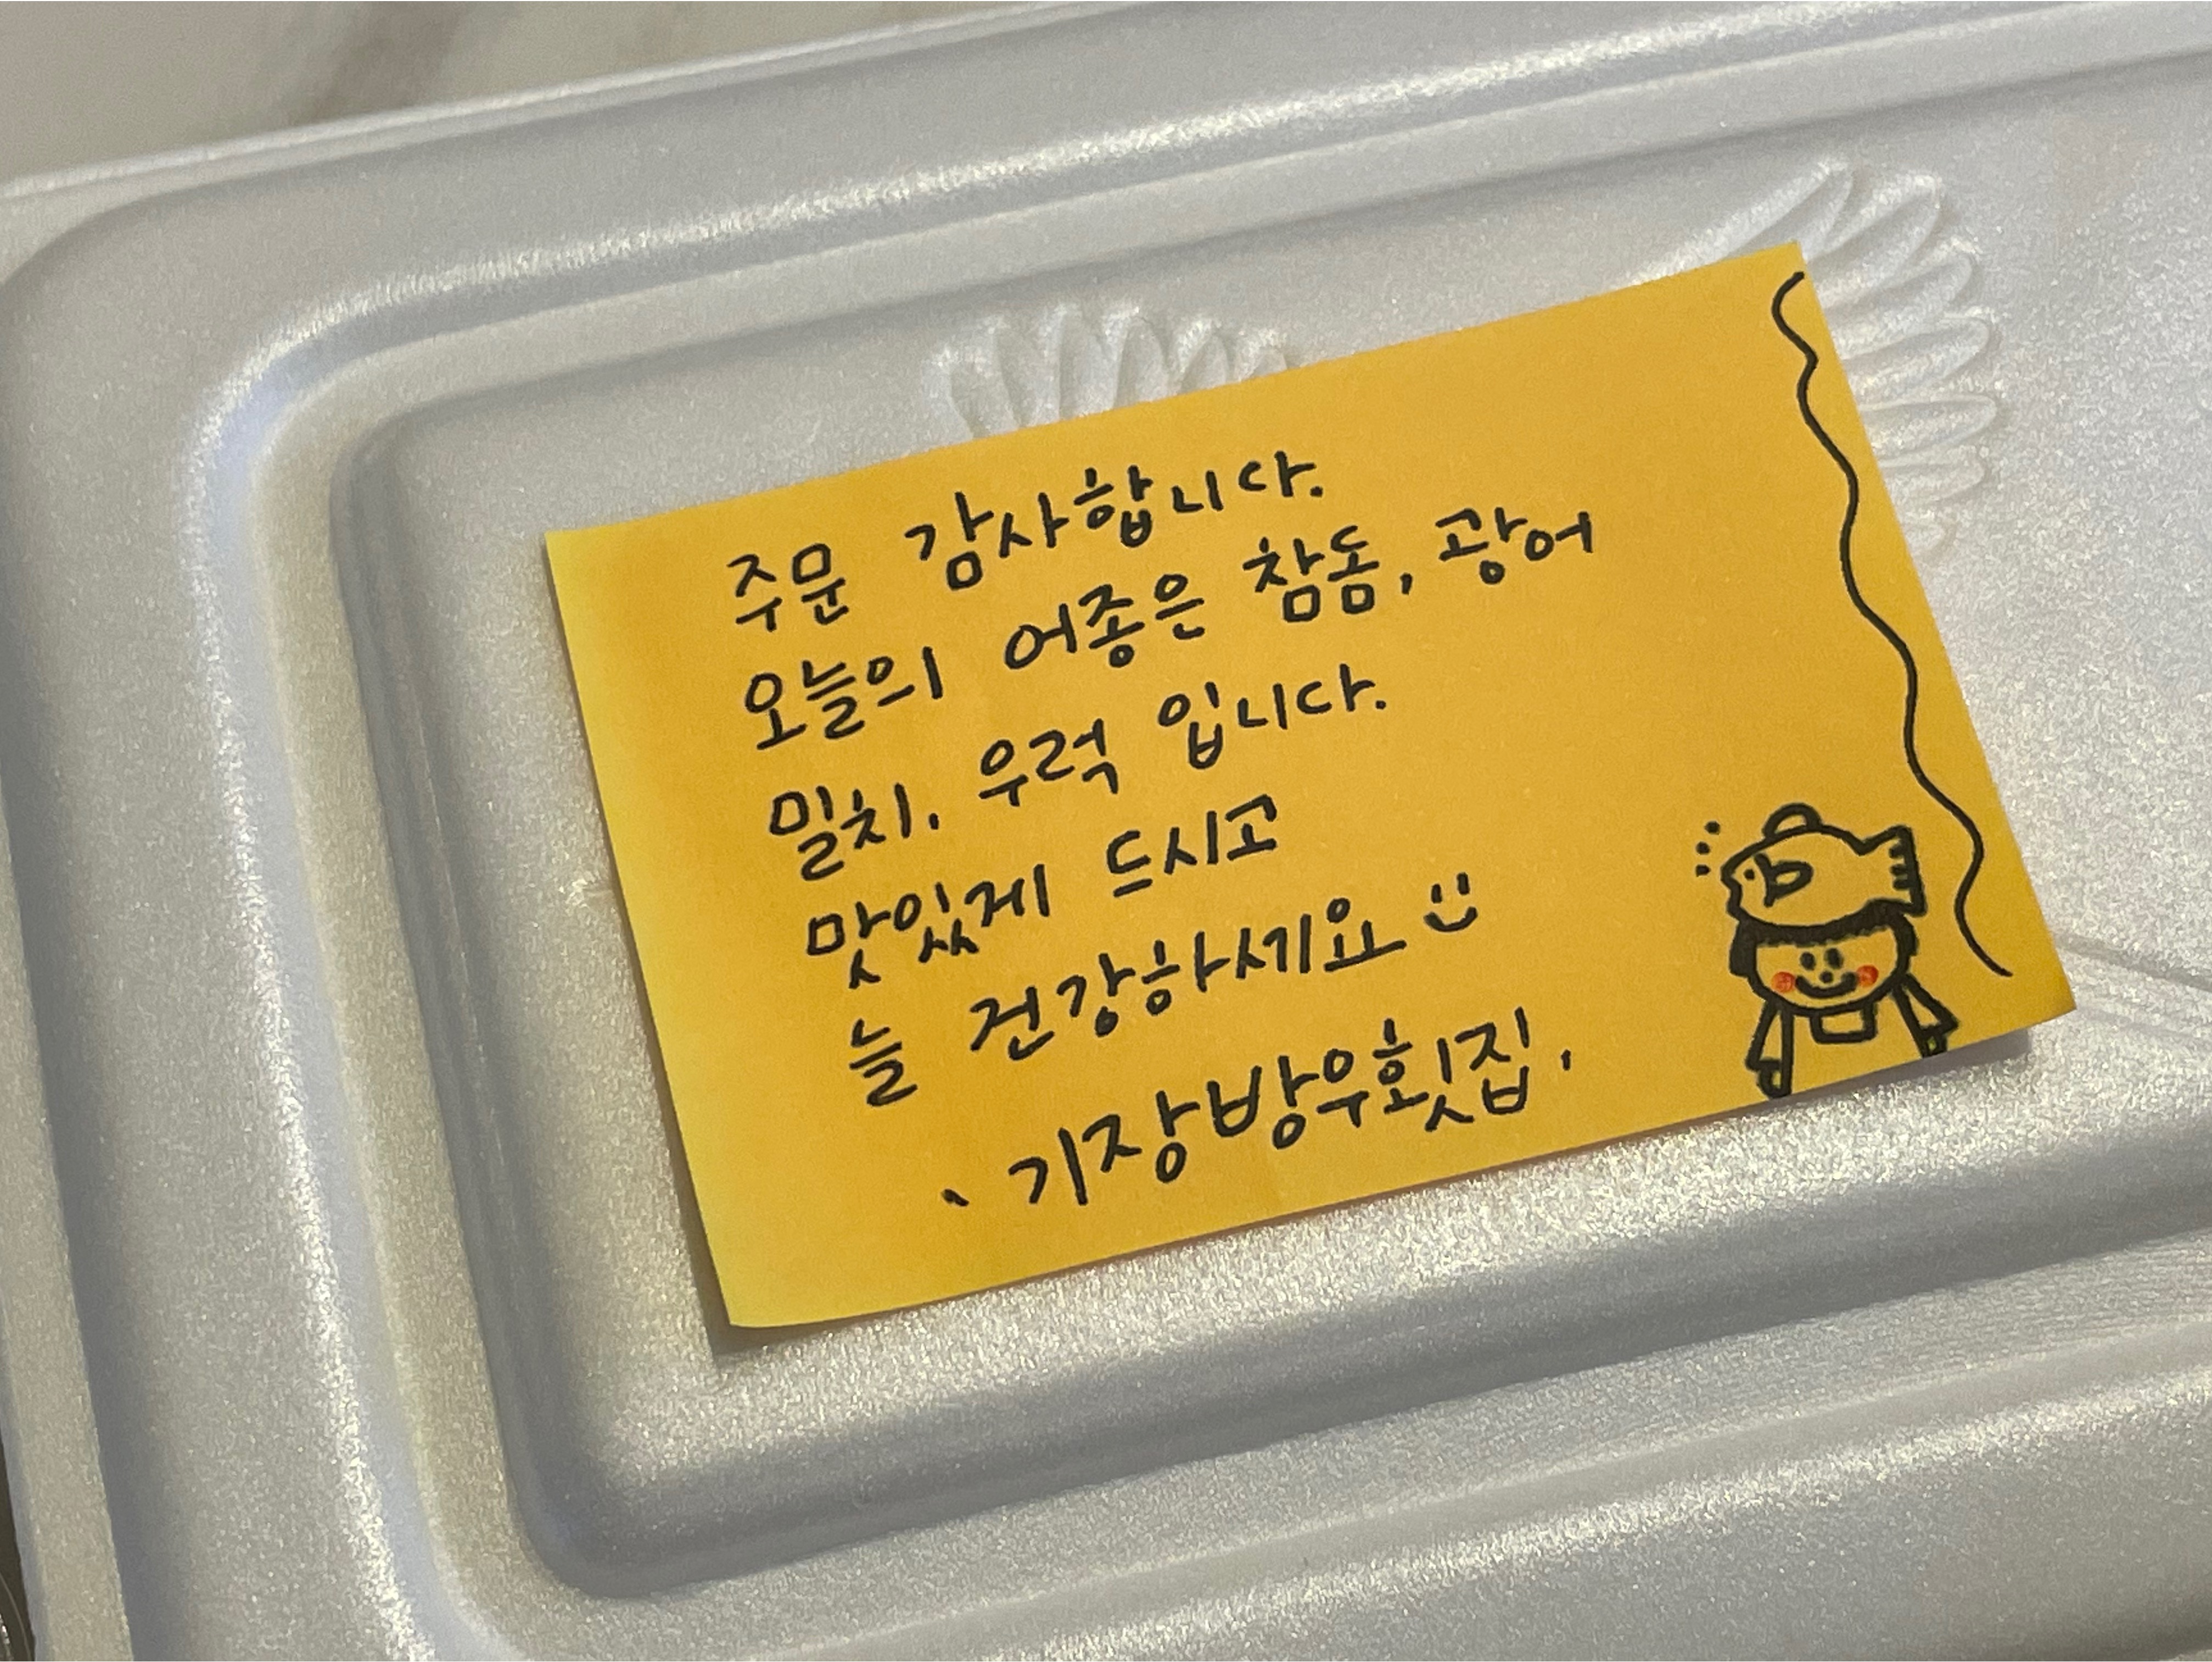 주문 감사합니다.
오늘의 어종은 참돔, 광어
밀치, 우럭 입니다.
맛있게 드시고
늘 건강하세요
、기장방우횟집.